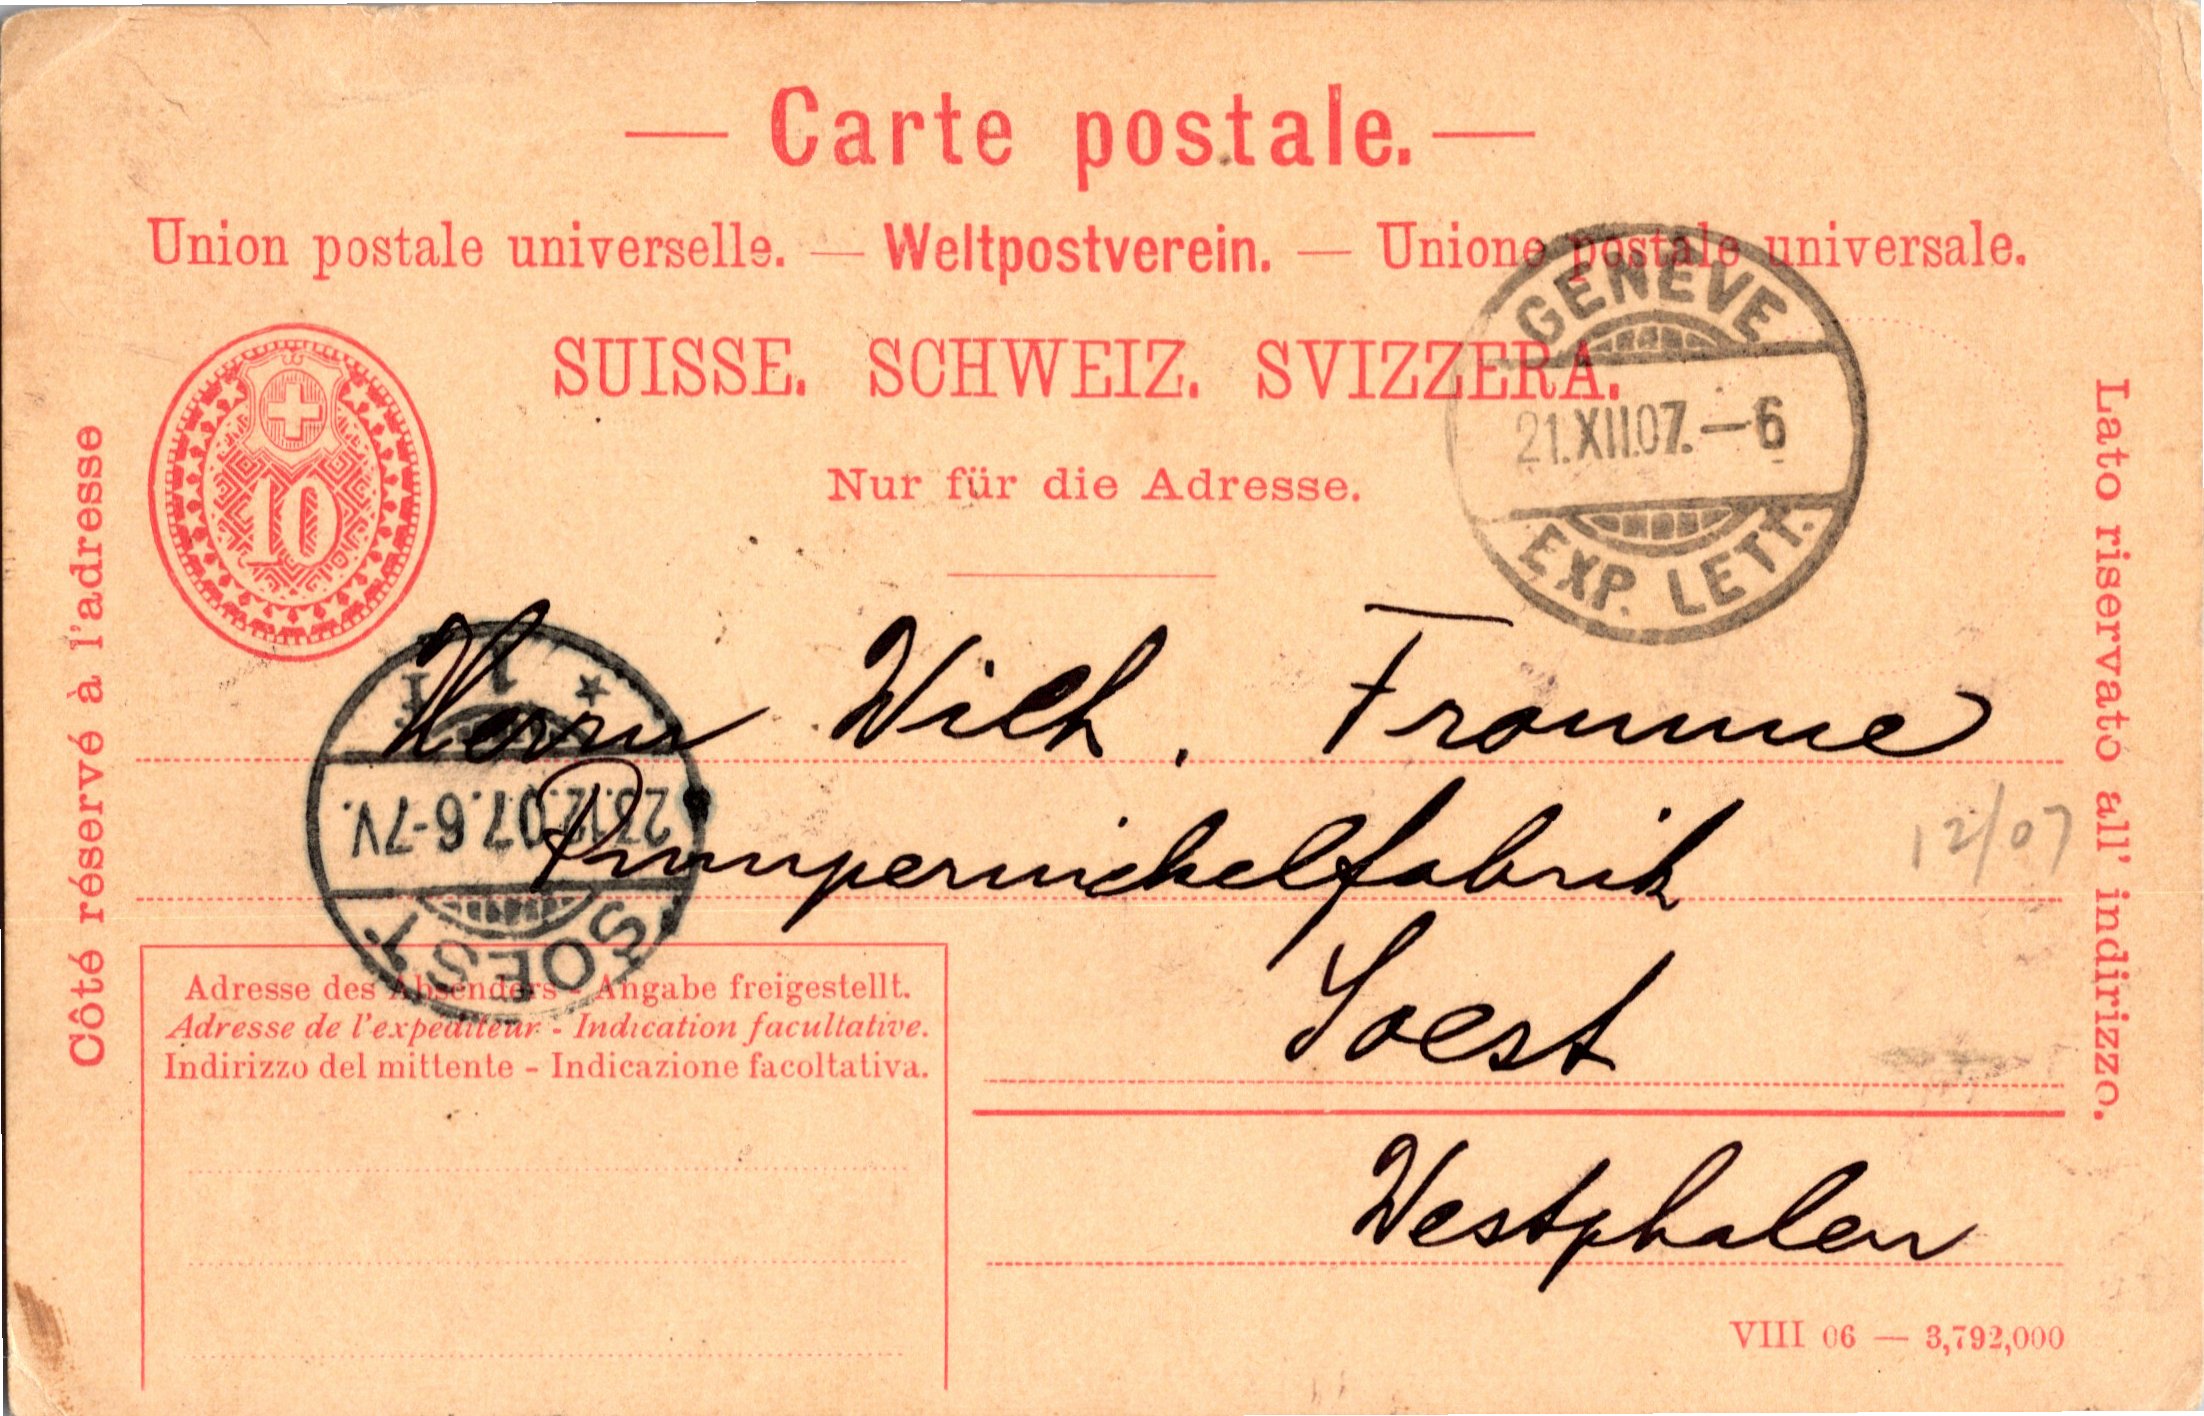 — Carte postale. —
Union postale universelle. — Weltpostverein. — Unione postale universale.
SUISSE. SCHWEIZ. SVIZZERA.
Nur für die Adresse.
10
GENÈVE
21.XII.07.—6
EXP. LETT.
Côté réservé à l'adresse
Lato riservato all' indirizzo.
Herrn Wilh. Fromme
Pumpernickelfabrik
Soest
Westphalen
12/07
SOEST
23.12.07.6-7V.
* 1
Adresse des Absenders - Angabe freigestellt.
Adresse de l'expéditeur - Indication facultative.
Indirizzo del mittente - Indicazione facoltativa.
VIII 06 — 3,792,000